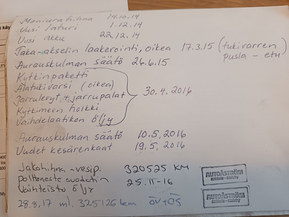 14.10.14
Uusi laturi 1.12.14
Uusi akku 22.12.14
Taka-akselin laakerointi, oikea 17.3.15 (tukivarren pusla - etu)
Aurauskulman säätö 26.6.15
Kytkinpaketti
Alatukivarsi (oikea)
Jarrulevyt + jarrupalat 30.4.2016
Kytkimen
Vaihdelaatikon öljy
Aurauskulman säätö 10.5.2016
Uudet kesärenkaat 19.5.2016
Jakohihna - vesip. 320525 KM
polttoaine suodatin 25.11-16
Vaihteisto öljy
28.9.17 ml. 325126 km öv+ös